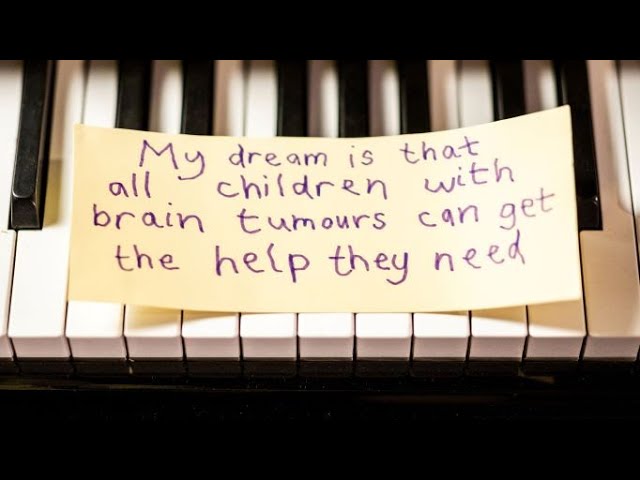 My dream is that
all children with
brain tumours can get
the help they need